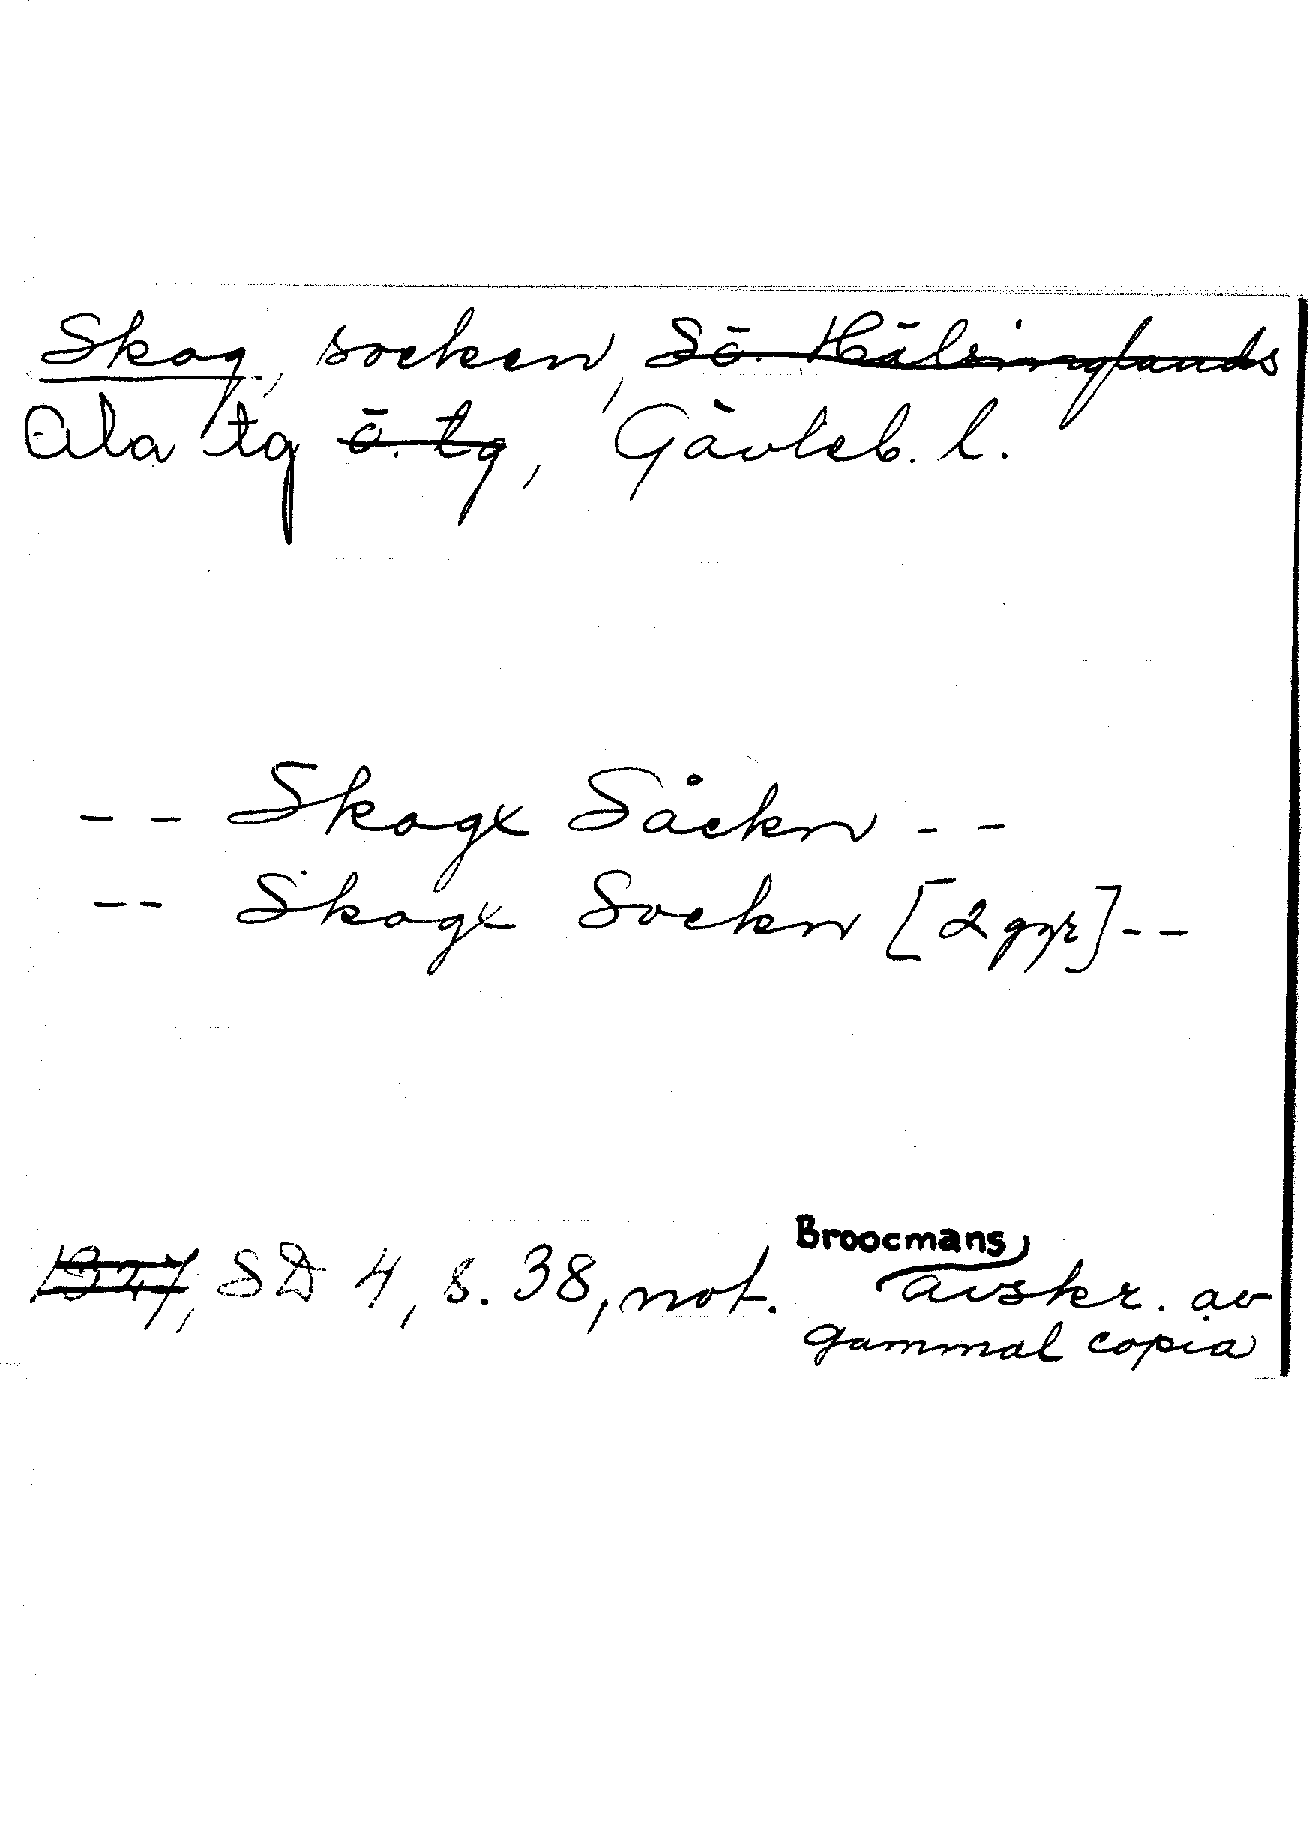 Skog, socken, Sö. Hälsinglands
Ala tg ö. tg, Gävleb. l.
-- Skogx Såckn --
-- Skogx Sockn [2 ggr] --
1327, SD 4, s. 38, not. Broocmans avskr. av
gammal copia